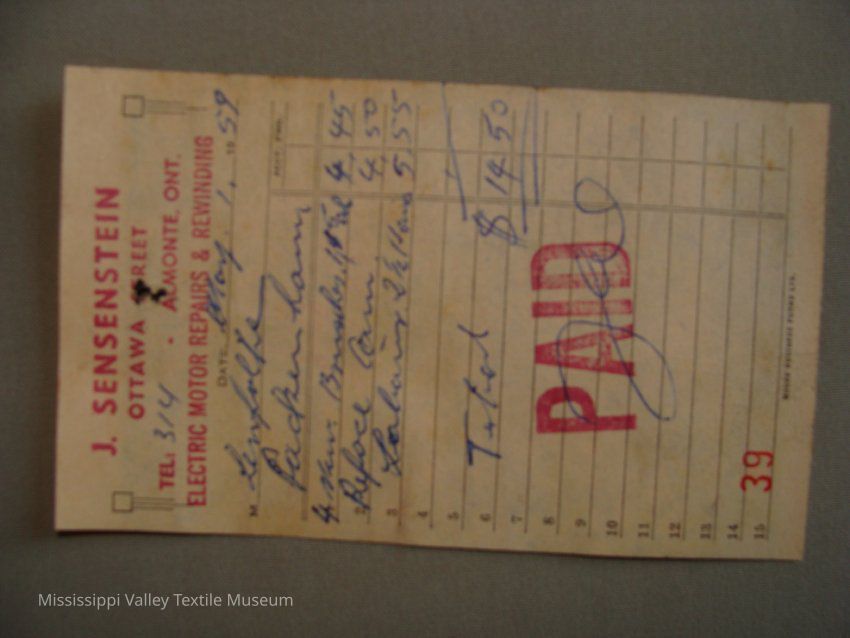 J. SENSENSTEIN
OTTAWA STREET
TEL: 314 - ALMONTE, ONT.
ELECTRIC MOTOR REPAIRS & REWINDING
DATE May 1, 1959
M
Packenham
4 New Brushes 4 45
2 Reface Com 4 50
3 Labour 2½ Hours 5 55
4
5
6 Total $ 14 50
7
8
9
10
11
12
13
14
15
PAID
39
Mississippi Valley Textile Museum